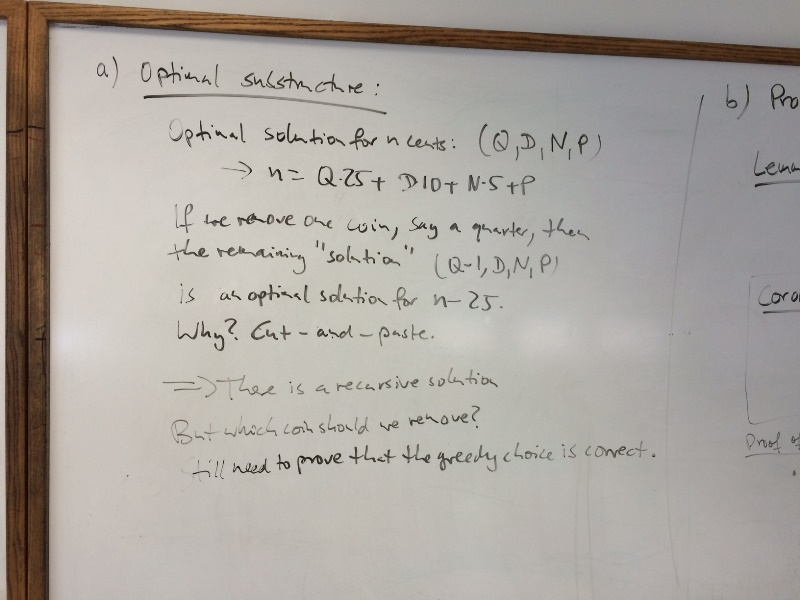 a) Optimal substructure:
Optimal solution for n cents: (Q, D, N, P)
→ n = Q·25 + D·10 + N·5 + P
If we remove one coin, say a quarter, then
the remaining "solution" (Q-1, D, N, P)
is an optimal solution for n-25.
Why? Cut-and-paste.
⇒ There is a recursive solution
But which coin should we remove?
till need to prove that the greedy choice is correct.
b) Pro
Lemm
Coro
Proof of